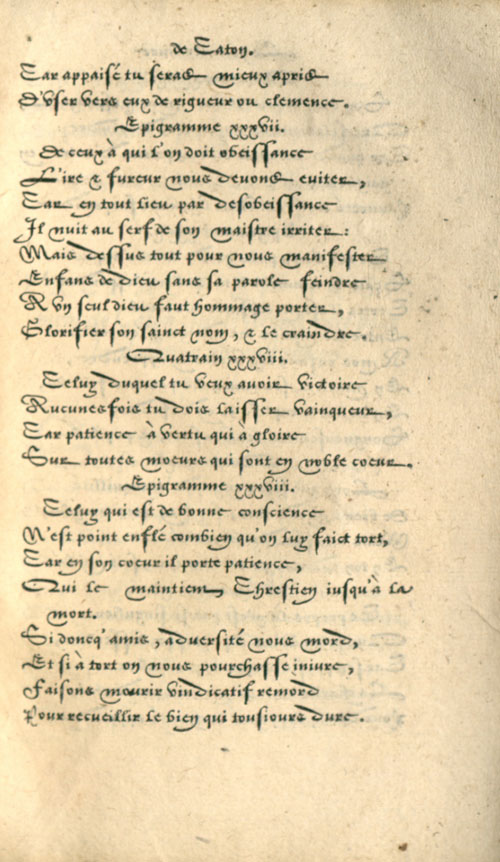 de Caton.
Car appaisé tu seras mieux apris
D'vser vers eux de rigueur ou clemence.
Epigramme xxxvii.
De ceux à qui l'on doit obeissance
L'ire & fureur nous deuons euiter,
Car en tout lieu par desobeissance
Il nuit au serf de son maistre irriter:
Mais dessus tout pour nous manifester
Enfans de dieu sans sa parole feindre
A vn seul dieu faut hommage porter,
Glorifier son sainct nom, & le craindre.
Quatrain xxxviii.
Celuy duquel tu veux auoir victoire
Aucunesfois tu dois laisser vainqueur,
Car patience à vertu qui à gloire
Sur toutes moeurs qui sont en noble coeur.
Epigramme xxxviii.
Celuy qui est de bonne conscience
N'est point enflé combien qu'on luy faict tort,
Car en son coeur il porte patience,
Qui le maintient Chrestien iusqu'à la
mort.
Si doncq' amis, aduersité nous mord,
Et si à tort on nous pourchasse iniure,
Faisons mourir vindicatif remord
Pour recueillir le bien qui tousiours dure.